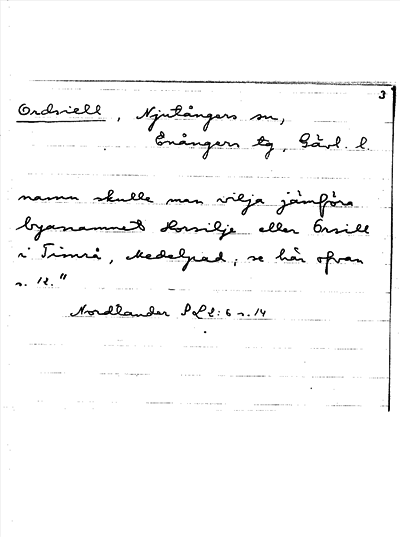 3
Ordsiell, Njutångers sn,
Enångers tg, Gävl. l.
namn skulle man vilja jämföra
byanamnet Horsilje eller Orsill
i Timrå, Medelpad; se här ofvan
s. 12."
Nordlander SL 2:6 s. 14